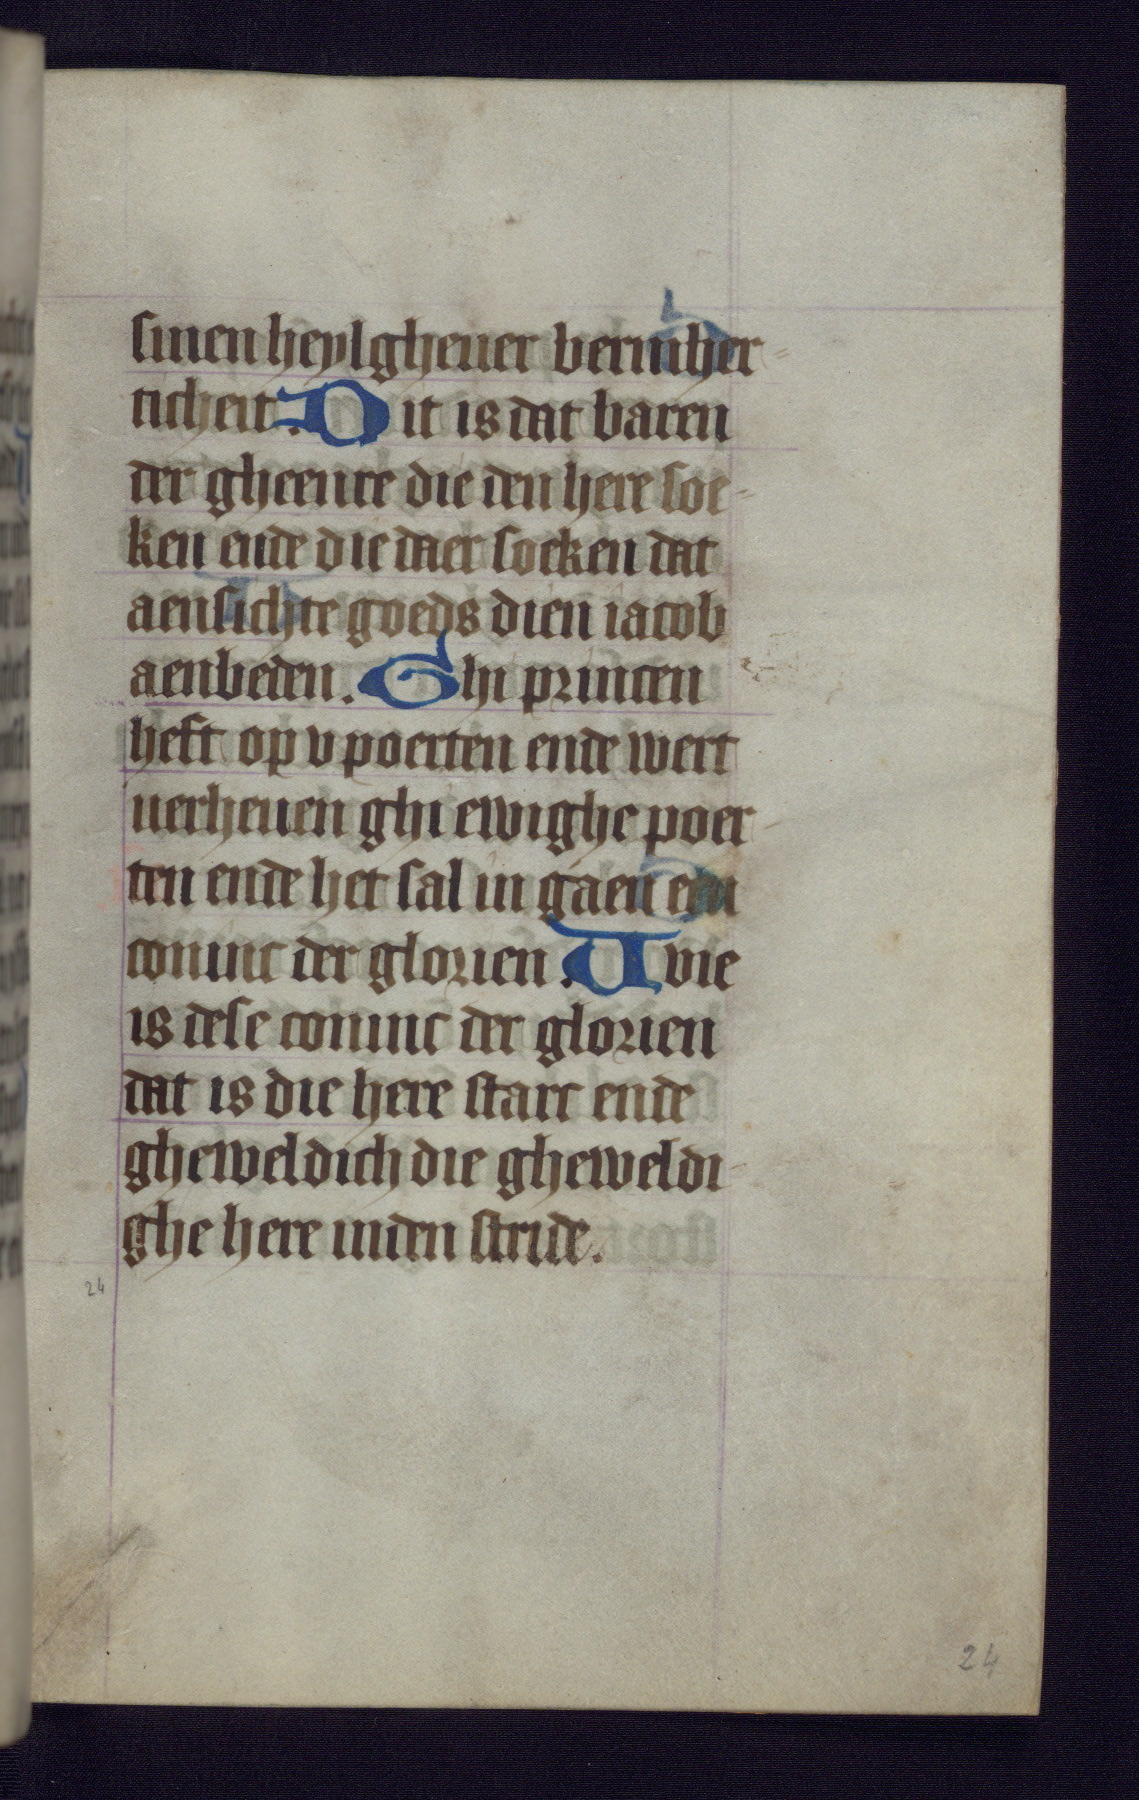 sinen heylgheuer bermher
ticheit. Dit is dat baren
der gheenre die den here soe
ken ende die daer soeken dat
aensichte goeds dien iacob
aenbeden. Ghi princen
heft op v poerten ende wert
uerheuen ghi ewighe poer
ten ende het sal in gaen een
coninc der glorien. Wie
is dese coninc der glorien
dat is die here starc ende
gheweldich die gheweldi
ghe here inden stride.
24
24